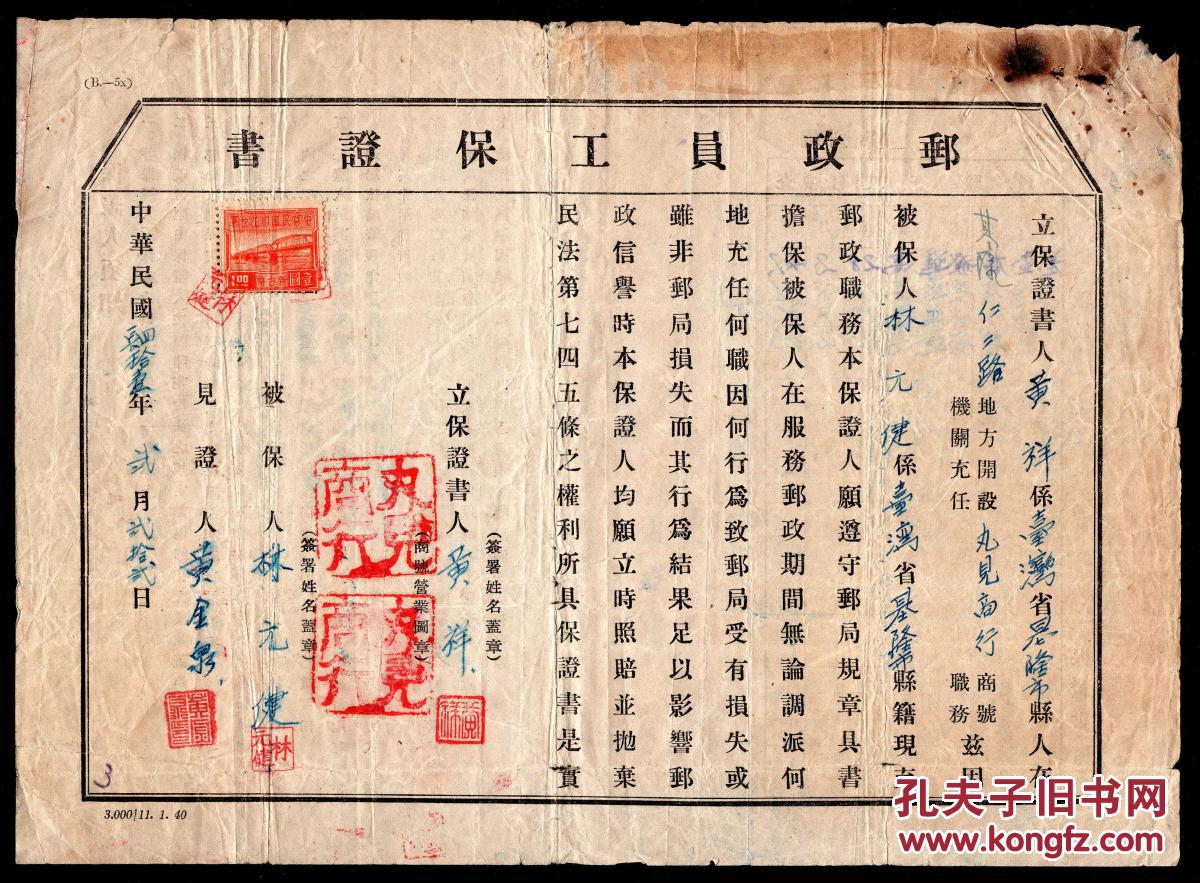 (B.—5x)
郵政員工保證書
立保證書人黃祥係臺灣省基隆市縣人在
基隆仁二路地方開設丸見商行商號茲因
機關充任職務
被保人林元健係臺灣省基隆市縣籍現充
郵政職務本保證人願遵守郵局規章具書
擔保被保人在服務郵政期間無論調派何
地充任何職因何行為致郵局受有損失或
雖非郵局損失而其行為結果足以影響郵
政信譽時本保證人均願立時照賠並拋棄
民法第七四五條之權利所具保證書是實
(簽署姓名蓋章)
立保證書人黃祥
(商號營業圖章)
丸見商行
丸見商行
(簽署姓名蓋章)
被保人林元健
林元健
見證人黃金泉
中華民國四拾壹年貳月貳拾貳日
1.00
林元健
3
3.000/11. 1. 40
孔夫子旧书网
www.kongfz.com